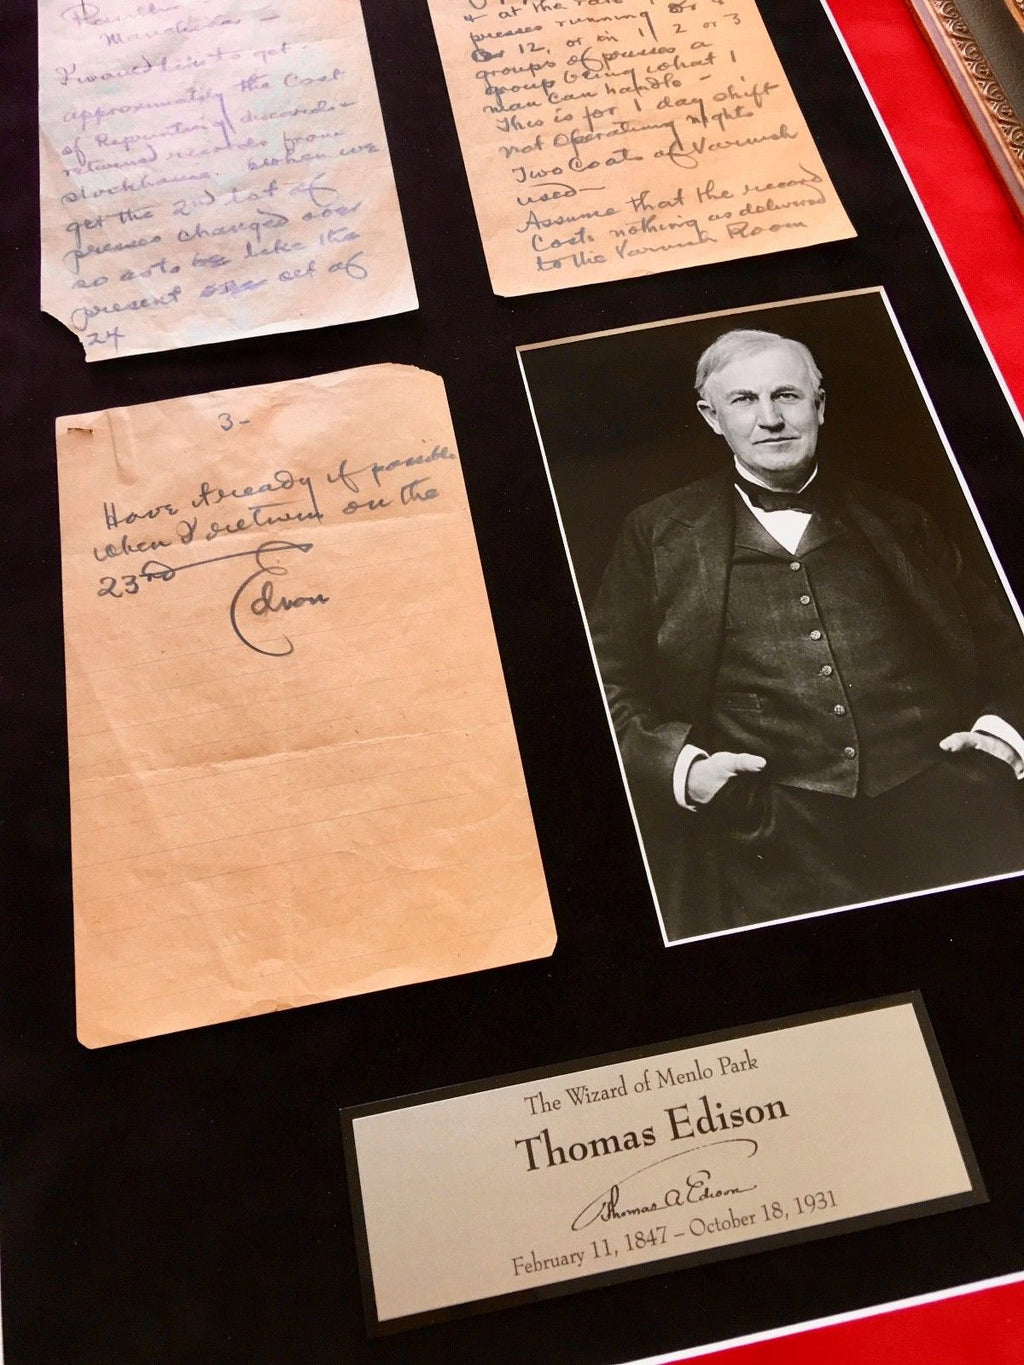 I want him to get
approximately the Cost
of Reprinting discards +
returned records from
stockhouse. When we
get the 2nd lot of
presses changed over
so as to be like the
present set of
24
+ at the rate
presses running or 4
or 12, or in 1 2 or 3
groups of presses a
group being what 1
man can handle -
This is for 1 day shift
not operating nights
Two Coats of Varnish
used -
Assume that the record
Costs nothing as delivered
to the Varnish Room
3-
Have it ready if possible
when I return on the
23rd
Edison
The Wizard of Menlo Park
Thomas Edison
Thomas A Edison
February 11, 1847 – October 18, 1931